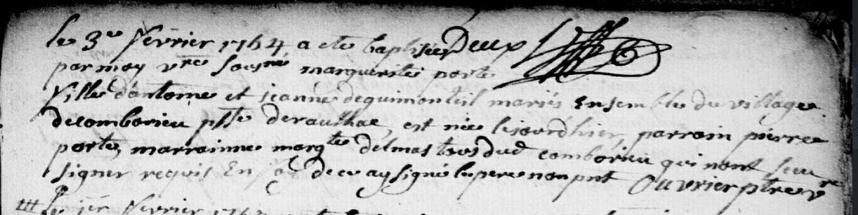 le 3e fevrier 1764 a ete baptisée Deux
par moy vre sousné marguerite porte
fille dantoine et jeanne dequimonteil mariés Ensemble du village
decomborieu psse deraulhac, est née lejourdhier, parrain pierre
porte, marrainne margte delmas tous dud comborieu qui nont sceu
signer requis En foy dece ay signé le pere non pnt Ouvrier ptre vre
le 1er fevrier 1764